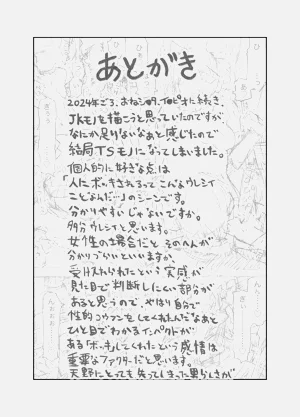 あとがき
2024年ごろ、おねショタ、TSロピオに続き、
JKモノを描こうと思っていたのですが
なにか足りないなあと感じたので
結局TSモノになってしまいました。
個人的に好きな点は
「人にボッキされるって こんなウレシイ
ことなんだ…」のシーンです。
分かりやすい じゃないですか。
多分ウレシイと思います。
女性の場合だと そのへんが
分かりづらいといいますか、
受け入れられたという 実感が
見た目で判断しにくい部分が
あると思うので、やはり自分で
性的コウフンを してくれたんだなあと
ひと目でわかるインパクトが
ある「ボッキ」してくれたという感情は
重要なファクターだと思います。
天野にとっても 失ってしまった男らしさが